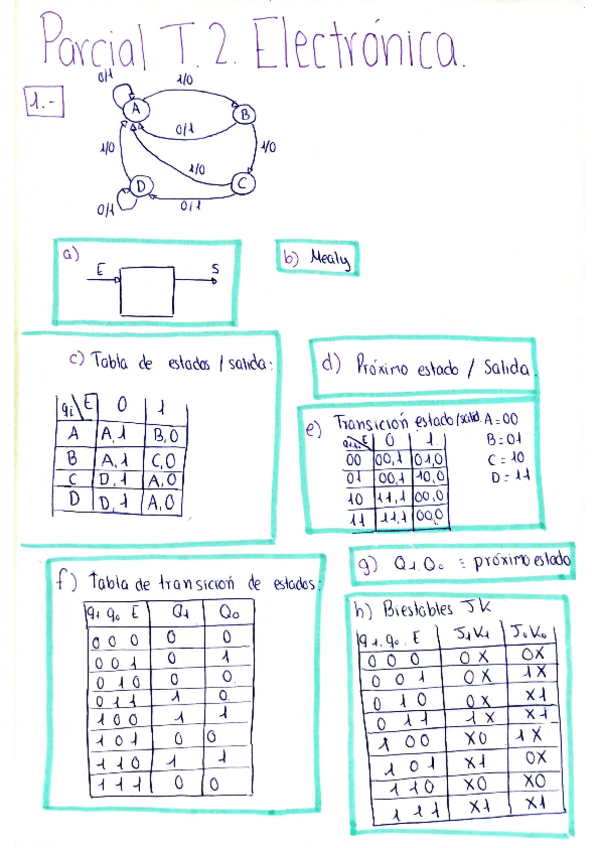 Parcial T.2. Electrónica.
1.-
0/1
1/0
A
B
0/1
1/0
1/0
1/0
D
C
0/1
0/1
a)
E
S
b) Mealy
c) Tabla de estados / salida:
qi\E 0 1
A A,1 B,0
B A,1 C,0
C D,1 A,0
D D,1 A,0
d) Próximo estado / Salida
e) Transición estado/salid.
A=00
B=01
C=10
D=11
0 1
00 00,1 01,0
01 00,1 10,0
10 11,1 00,0
11 11,1 00,0
f) Tabla de transición de estados:
q1 q0 E Q1 Q0
0 0 0 0 0
0 0 1 0 1
0 1 0 0 0
0 1 1 1 0
1 0 0 1 1
1 0 1 0 0
1 1 0 1 1
1 1 1 0 0
g) Q1.Q0 : próximo estado
h) Biestables JK
q1.q0.E J1K1 J0K0
0 0 0 0X 0X
0 0 1 0X 1X
0 1 0 0X X1
0 1 1 1X X1
1 0 0 X0 1X
1 0 1 X1 0X
1 1 0 X0 X0
1 1 1 X1 X1